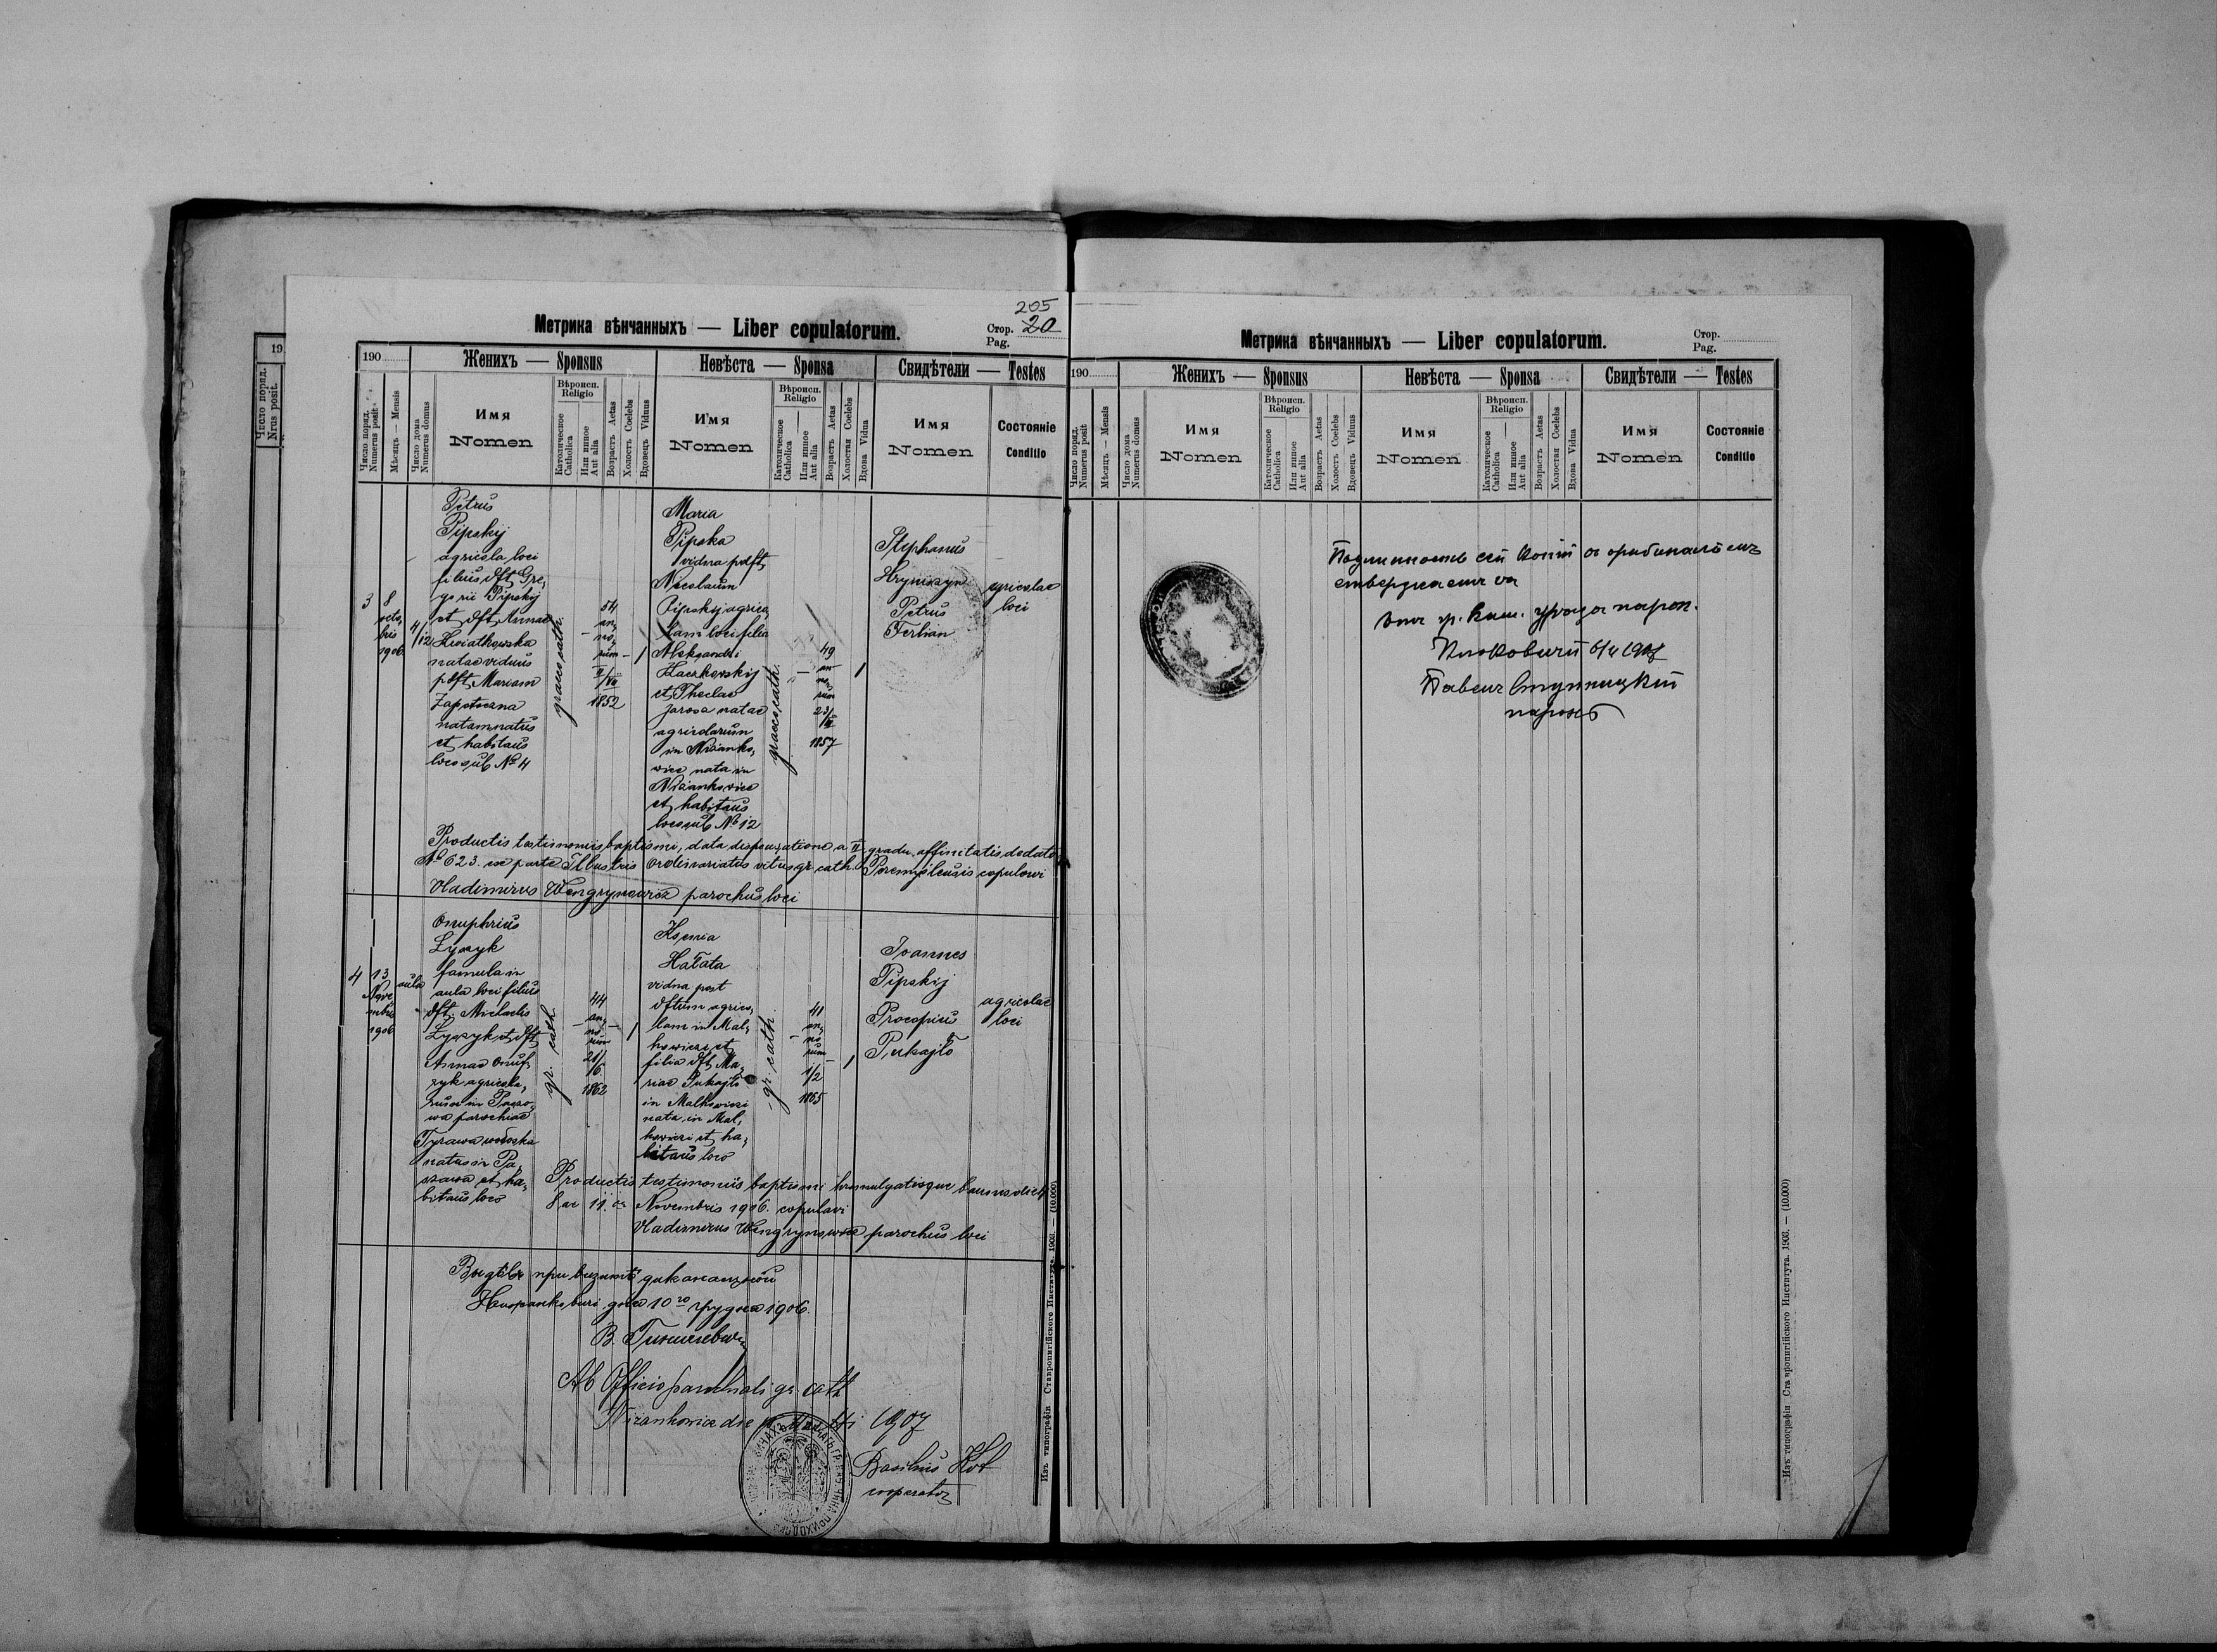 205
Метрика вѣнчанныхъ — Liber copulatorum.
Стор. 20
Pag.
19
Число поряд.
Nrus posit.
190
Женихъ — Sponsus
Невѣста — Sponsa
Свидѣтели — Testes
Число поряд.
Numerus posit
Мѣсяцъ — Mensis
Число дома
Numerus domus
Имя
Nomen
Вѣроисп.
Religio
Католическое
Catholica
Или инное
Aut alia
Возрасть Aetas
Холость Coelebs
Вдовецъ Viduus
Имя
Nomen
Вѣроисп.
Religio
Католическое
Catholica
Или инное
Aut alia
Возрасть Aetas
Холостая Coelebs
Вдова Vidua
Имя
Nomen
Состояніе
Conditio
3
8
octo,
bris
1906
4/12
Petrus
Pipskyj
agricola loci
filius dft. Gre,
gorii Pipskyj
et dft. Annae
Kwiatkowska
natae viduus
p. dft. Mariam
Zapotoczna
natam natus
et habitans
loco sub No 4
graeco cath.
54
an,
no,
rum
II/VII
1852
Maria
Pipska
vidua p. dft.
Nicolaum
Pipskyj agrico,
lam loci filia
Aleksandri
Haczkowskij
et Theclae
Jarosa natae
agricolarum
in Niżanko,
wice nata in
Niżankowice
et habitans
loco sub No 12
graeco cath.
49
an
no,
rum
23/
1857
Stephanus
Hryniszyn
Petrus
Ferbian
agricolae
loci
Productis testimoniis baptismi, data dispensatione a II gradu affinitatis dedato
No 623. ex parte Illustris Ordinariatus ritus gr. cath. Premisliensis copulavi
Vladimirus Wengrynowicz parochus loci
4
13
Nove
mbris
1906
aula
Onuphrius
Łyszyk
famula in
aula loci filius
dft. Michaelis
Łyszyk et dft.
Annae Onuf,
ryk agricola,
rum in Paszo,
wa parochiae
Tyrawa wołoska
natus in Pa,
szowa et ha,
bitans loco
gr. cath.
44
an,
no,
rum
21/
6
1862
Ksenia
Hałata
vidua post
dftum agrico,
lam in Mal,
howicze et
filia dft. Ma,
riae Pukajło
in Malhowicze
nata in Mal,
howicze et ha,
bitans loco
gr. cath.
41
an,
no
rum
1/2
1865
Joannes
Pipskij
Procopius
Pukajło
agricolae
loci
Productis testimoniis baptismi promulgatisque bannis dieb
8 ac 11. Novembris 1906. copulavi
Vladimirus Wengrynowicz parochus loci
дня 10го грудня 1906.
Ab Officio parochiali gr. cath
Niżankowice die 1907
Basilius Kot
cooperator
Изъ типографіи Ставропигійского Института. 1903. — (10.000)
Метрика вѣнчанныхъ — Liber copulatorum.
Стор.
Pag.
190
Женихъ — Sponsus
Невѣста — Sponsa
Свидѣтели — Testes
Число поряд.
Numerus posit
Мѣсяцъ — Mensis
Число дома
Numerus domus
Имя
Nomen
Вѣроисп.
Religio
Католическое
Catholica
Или инное
Aut alia
Возрасть Aetas
Холость Coelebs
Вдовецъ Viduus
Имя
Nomen
Вѣроисп.
Religio
Католическое
Catholica
Или инное
Aut alia
Возрасть Aetas
Холостая Coelebs
Вдова Vidua
Имя
Nomen
Состояніе
Conditio
Подлинность сей копіи
парох
Изъ типографіи Ставропигійского Института. 1903. — (10.000)